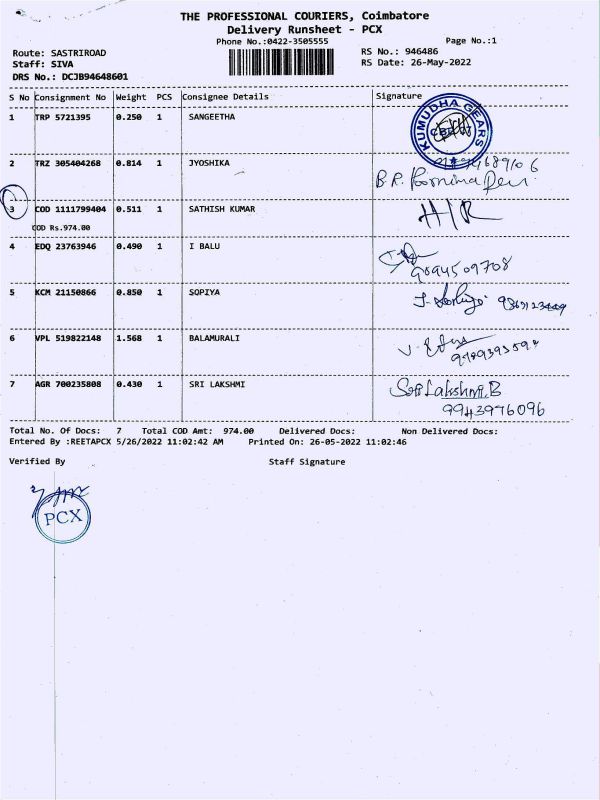 THE PROFESSIONAL COURIERS, Coimbatore
Delivery Runsheet - PCX
Phone No.:0422-3505555
Page No.:1
Route: SASTRIROAD
RS No.: 946486
Staff: SIVA
RS Date: 26-May-2022
DRS No.: DCJB94648601
S No Consignment No Weight PCS Consignee Details Signature
1 TRP 5721395 0.250 1 SANGEETHA
KUMUDHA GEARS
2 TRZ 305404268 0.814 1 JYOSHIKA
3 COD 1111799404 0.511 1 SATHISH KUMAR H/R
COD Rs.974.00
4 EDQ 23763946 0.490 1 I BALU
9894509708
5 KCM 21150866 0.850 1 SOPIYA
6 VPL 519822148 1.568 1 BALAMURALI
7 AGR 700235808 0.430 1 SRI LAKSHMI Sri Lakshmi.B
9943976096
Total No. Of Docs: 7 Total COD Amt: 974.00 Delivered Docs: Non Delivered Docs:
Entered By :REETAPCX 5/26/2022 11:02:42 AM Printed On: 26-05-2022 11:02:46
Verified By Staff Signature
PCX